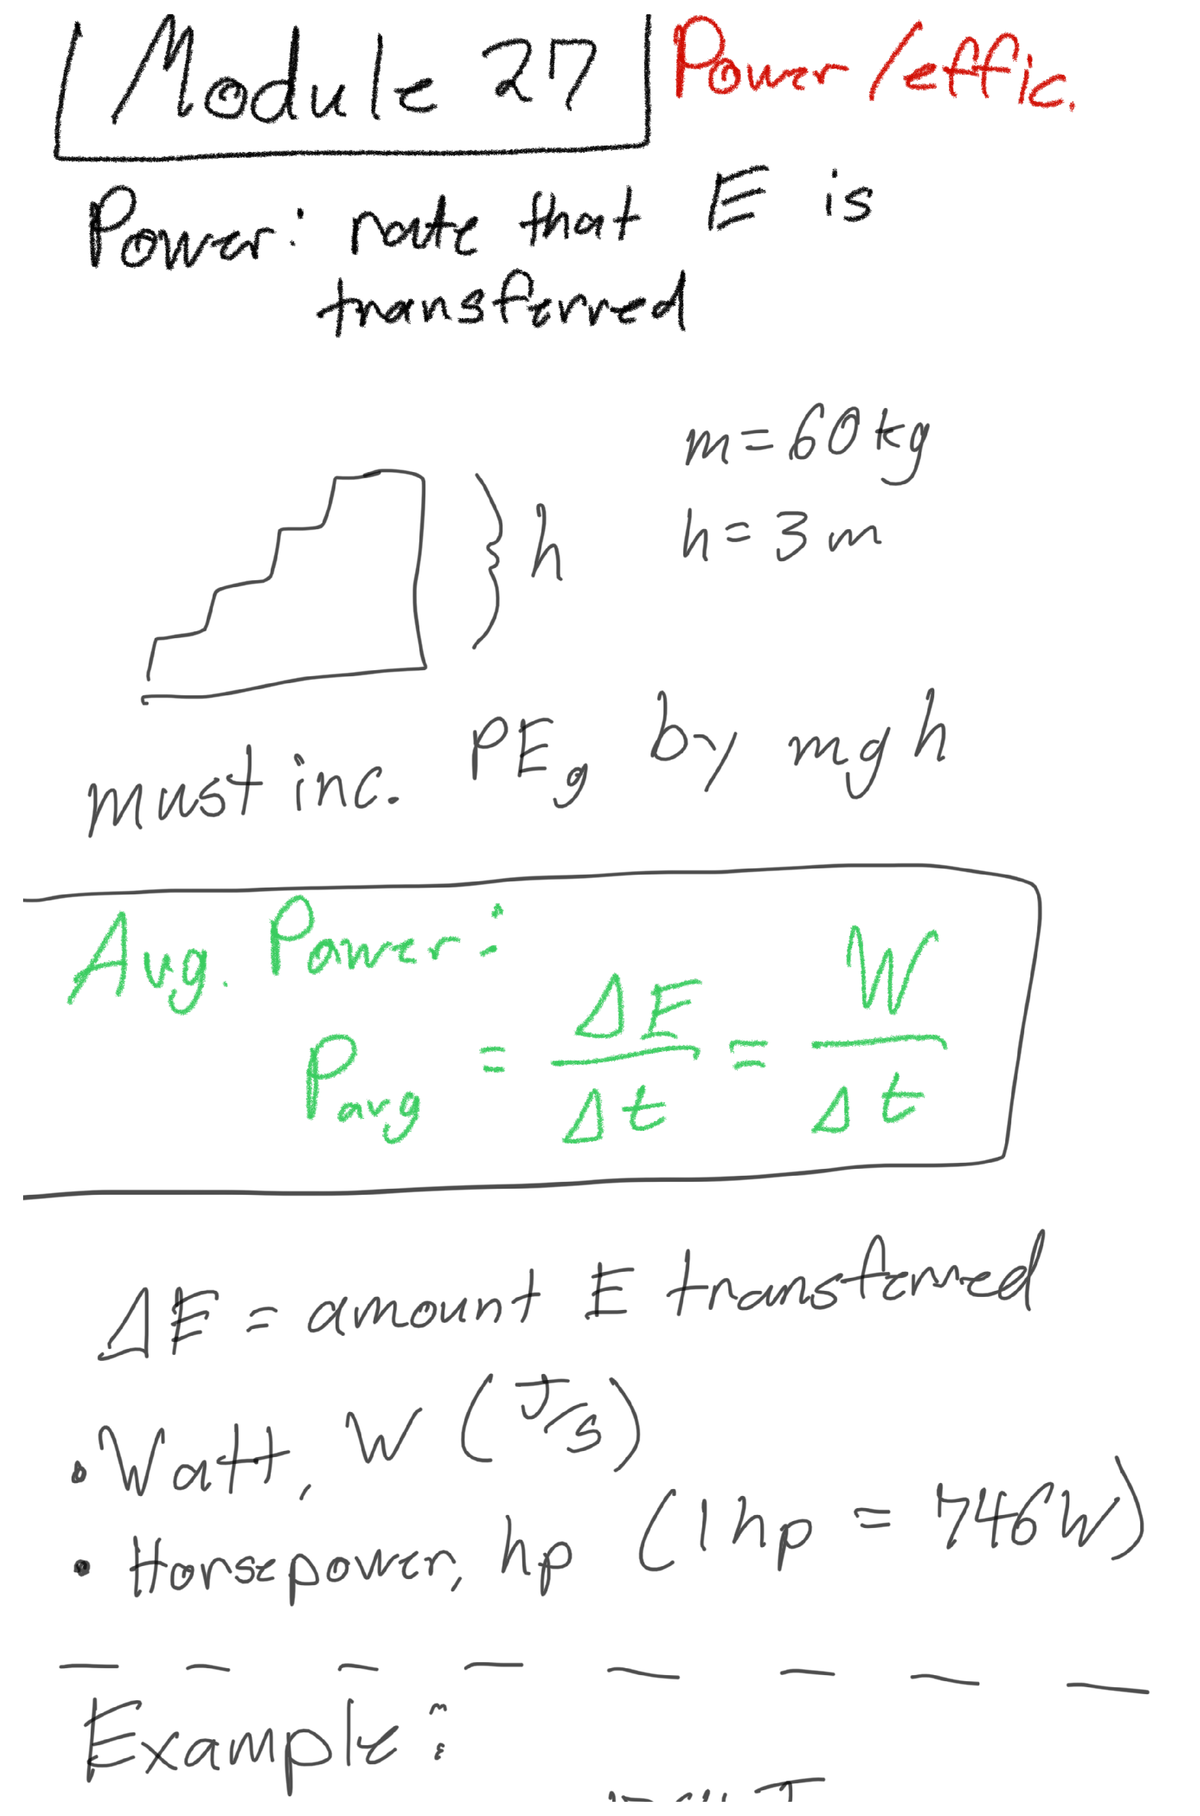 Module 27 Power/effic.
Power: rate that E is
transferred
m = 60 kg
h = 3 m
h
must inc. PEg by mgh
Avg. Power:
Pavg = ΔE/Δt = W/Δt
ΔE = amount E transferred
• Watt, W (J/s)
• Horsepower, hp (1 hp = 746 W)
Example: